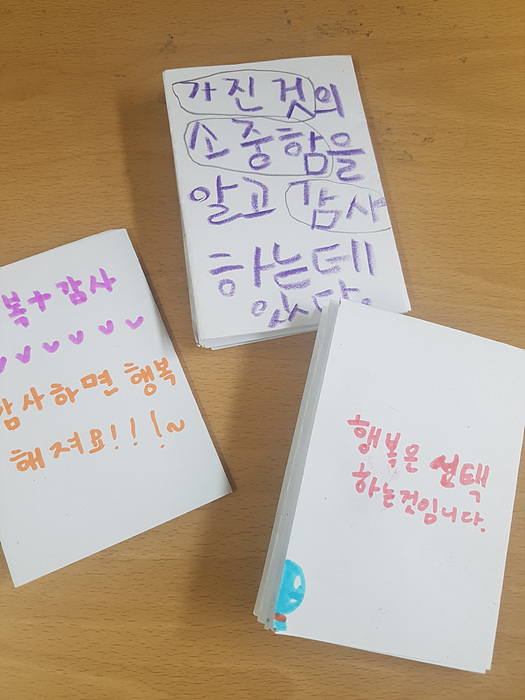 가진 것의
소중함을
알고 감사
하는데
있다.
복+감사
감사하면 행복
해져요!!!~
행복은 선택
하는것입니다.